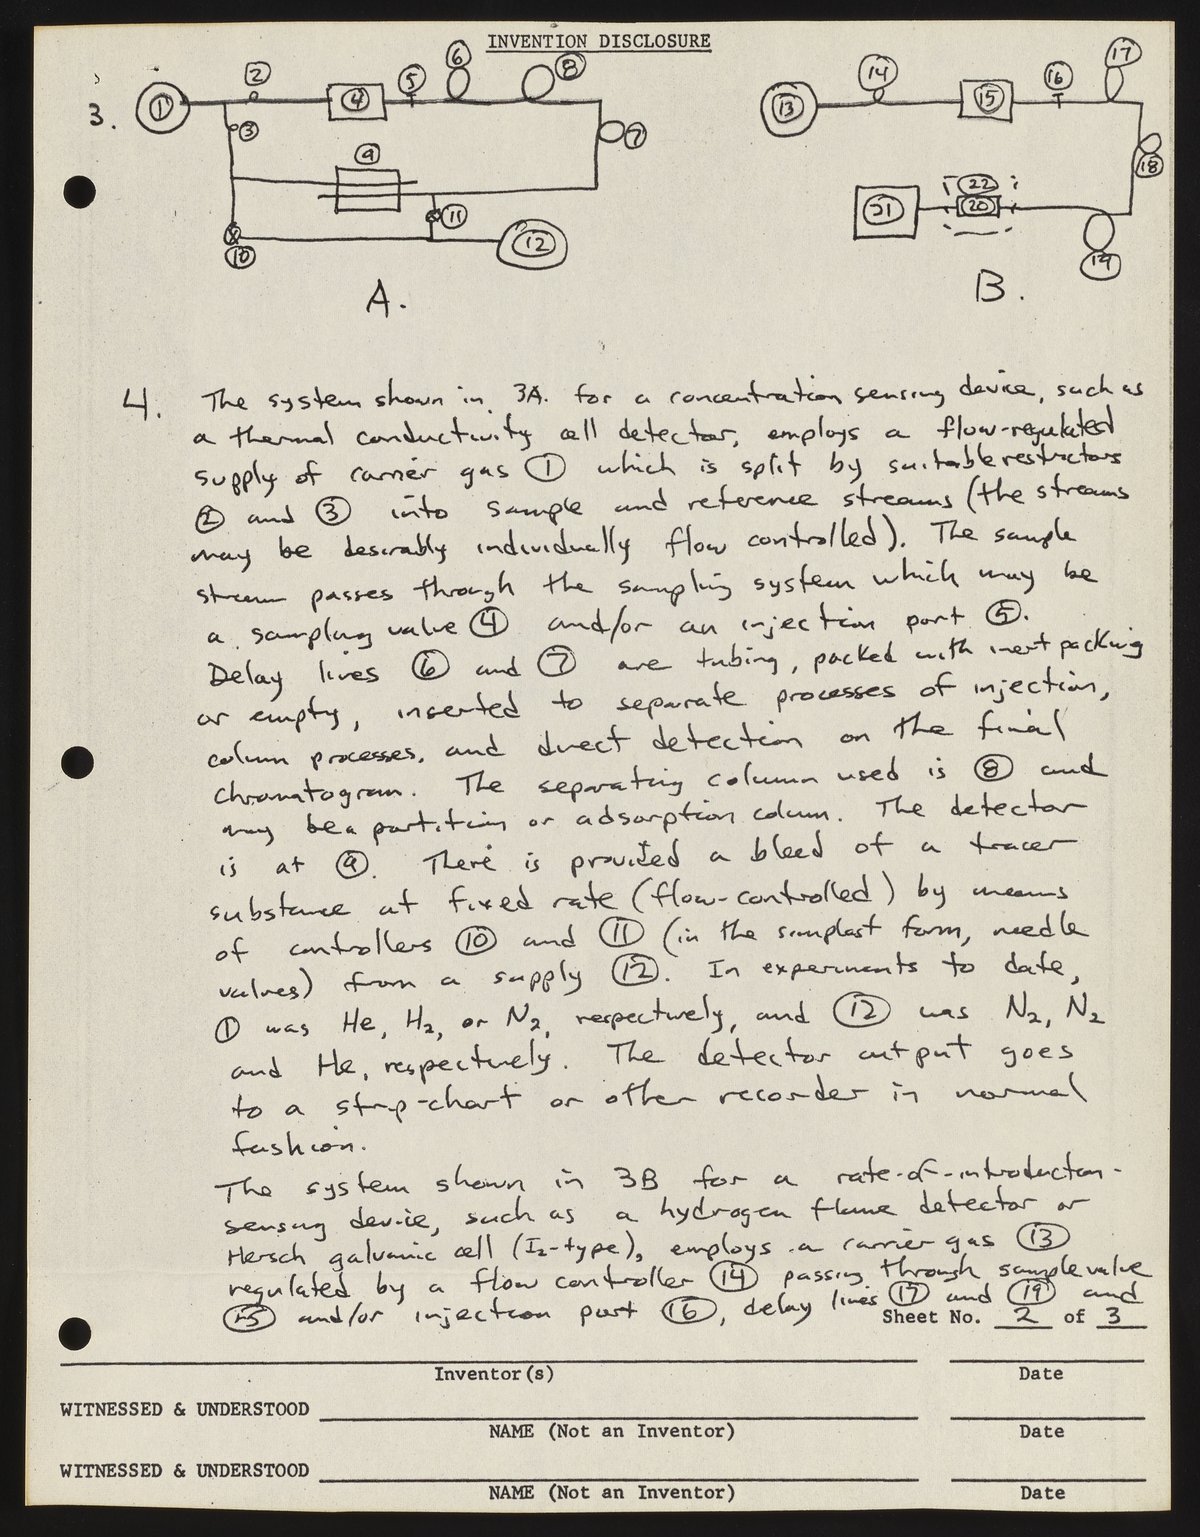 INVENTION DISCLOSURE
3.
1 2 3 4 5 6 8 7 9 10 11 12
A.
13 14 15 16 17 18 19 20 22 21
B.
4. The system shown in 3A. for a concentration sensing device, such as
a thermal conductivity cell detector, employs a flow-regulated
supply of carrier gas 1 which is split by suitable restrictors
2 and 3 into sample and reference streams (the streams
may be desirably individually flow controlled). The sample
stream passes through the sampling system which may be
a sampling valve 4 and/or an injection port 5.
Delay lines 6 and 7 are tubing, packed with inert packing
or empty, inserted to separate processes of injection,
column processes, and direct detection on the final
chromatogram. The separating column used is 8 and
may be a partition or adsorption column. The detector
is at 9. There is provided a bleed of a tracer
substance at fixed rate (flow-controlled) by means
of controllers 10 and 11 (in the simplest form, needle
valves) from a supply 12. In experiments to date,
1 was He, H2, or N2, respectively, and 12 was N2, N2
and He, respectively. The detector output goes
to a strip-chart or other recorder in normal
fashion.
The system shown in 3B for a rate-of-introduction-
sensing device, such as a hydrogen flame detector or
Hersch galvanic cell (I2-type), employs a carrier gas 13
regulated by a flow controller 14 passing through sample valve
15 and/or injection port 16, delay lines 17 and 19 and
Sheet No. 2 of 3
Inventor(s) Date
WITNESSED & UNDERSTOOD
NAME (Not an Inventor) Date
WITNESSED & UNDERSTOOD
NAME (Not an Inventor) Date